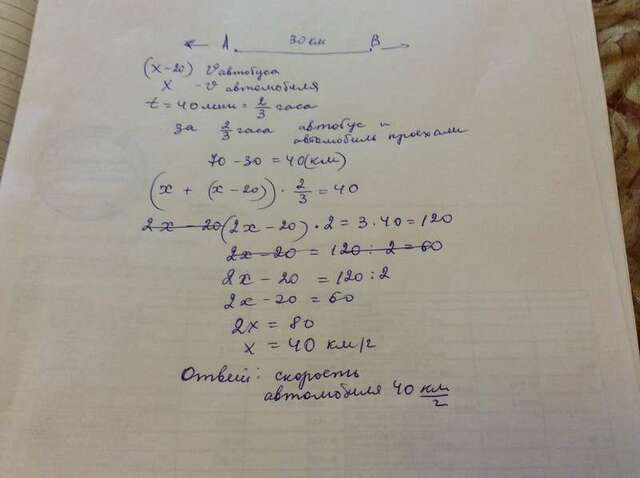 A 30 км B
(x-20) v автобуса
x - v автомобиля
t = 40 мин = 2/3 часа
за 2/3 часа автобус и
автомобиль проехали
70 - 30 = 40 (км)
(x + (x - 20)) · 2/3 = 40
2x - 20 (2x - 20) · 2 = 3 · 40 = 120
2x - 20 = 120 : 2 = 60
2x - 20 = 120 : 2
2x - 20 = 60
2x = 80
x = 40 км/ч
Ответ: скорость
автомобиля 40 км/ч